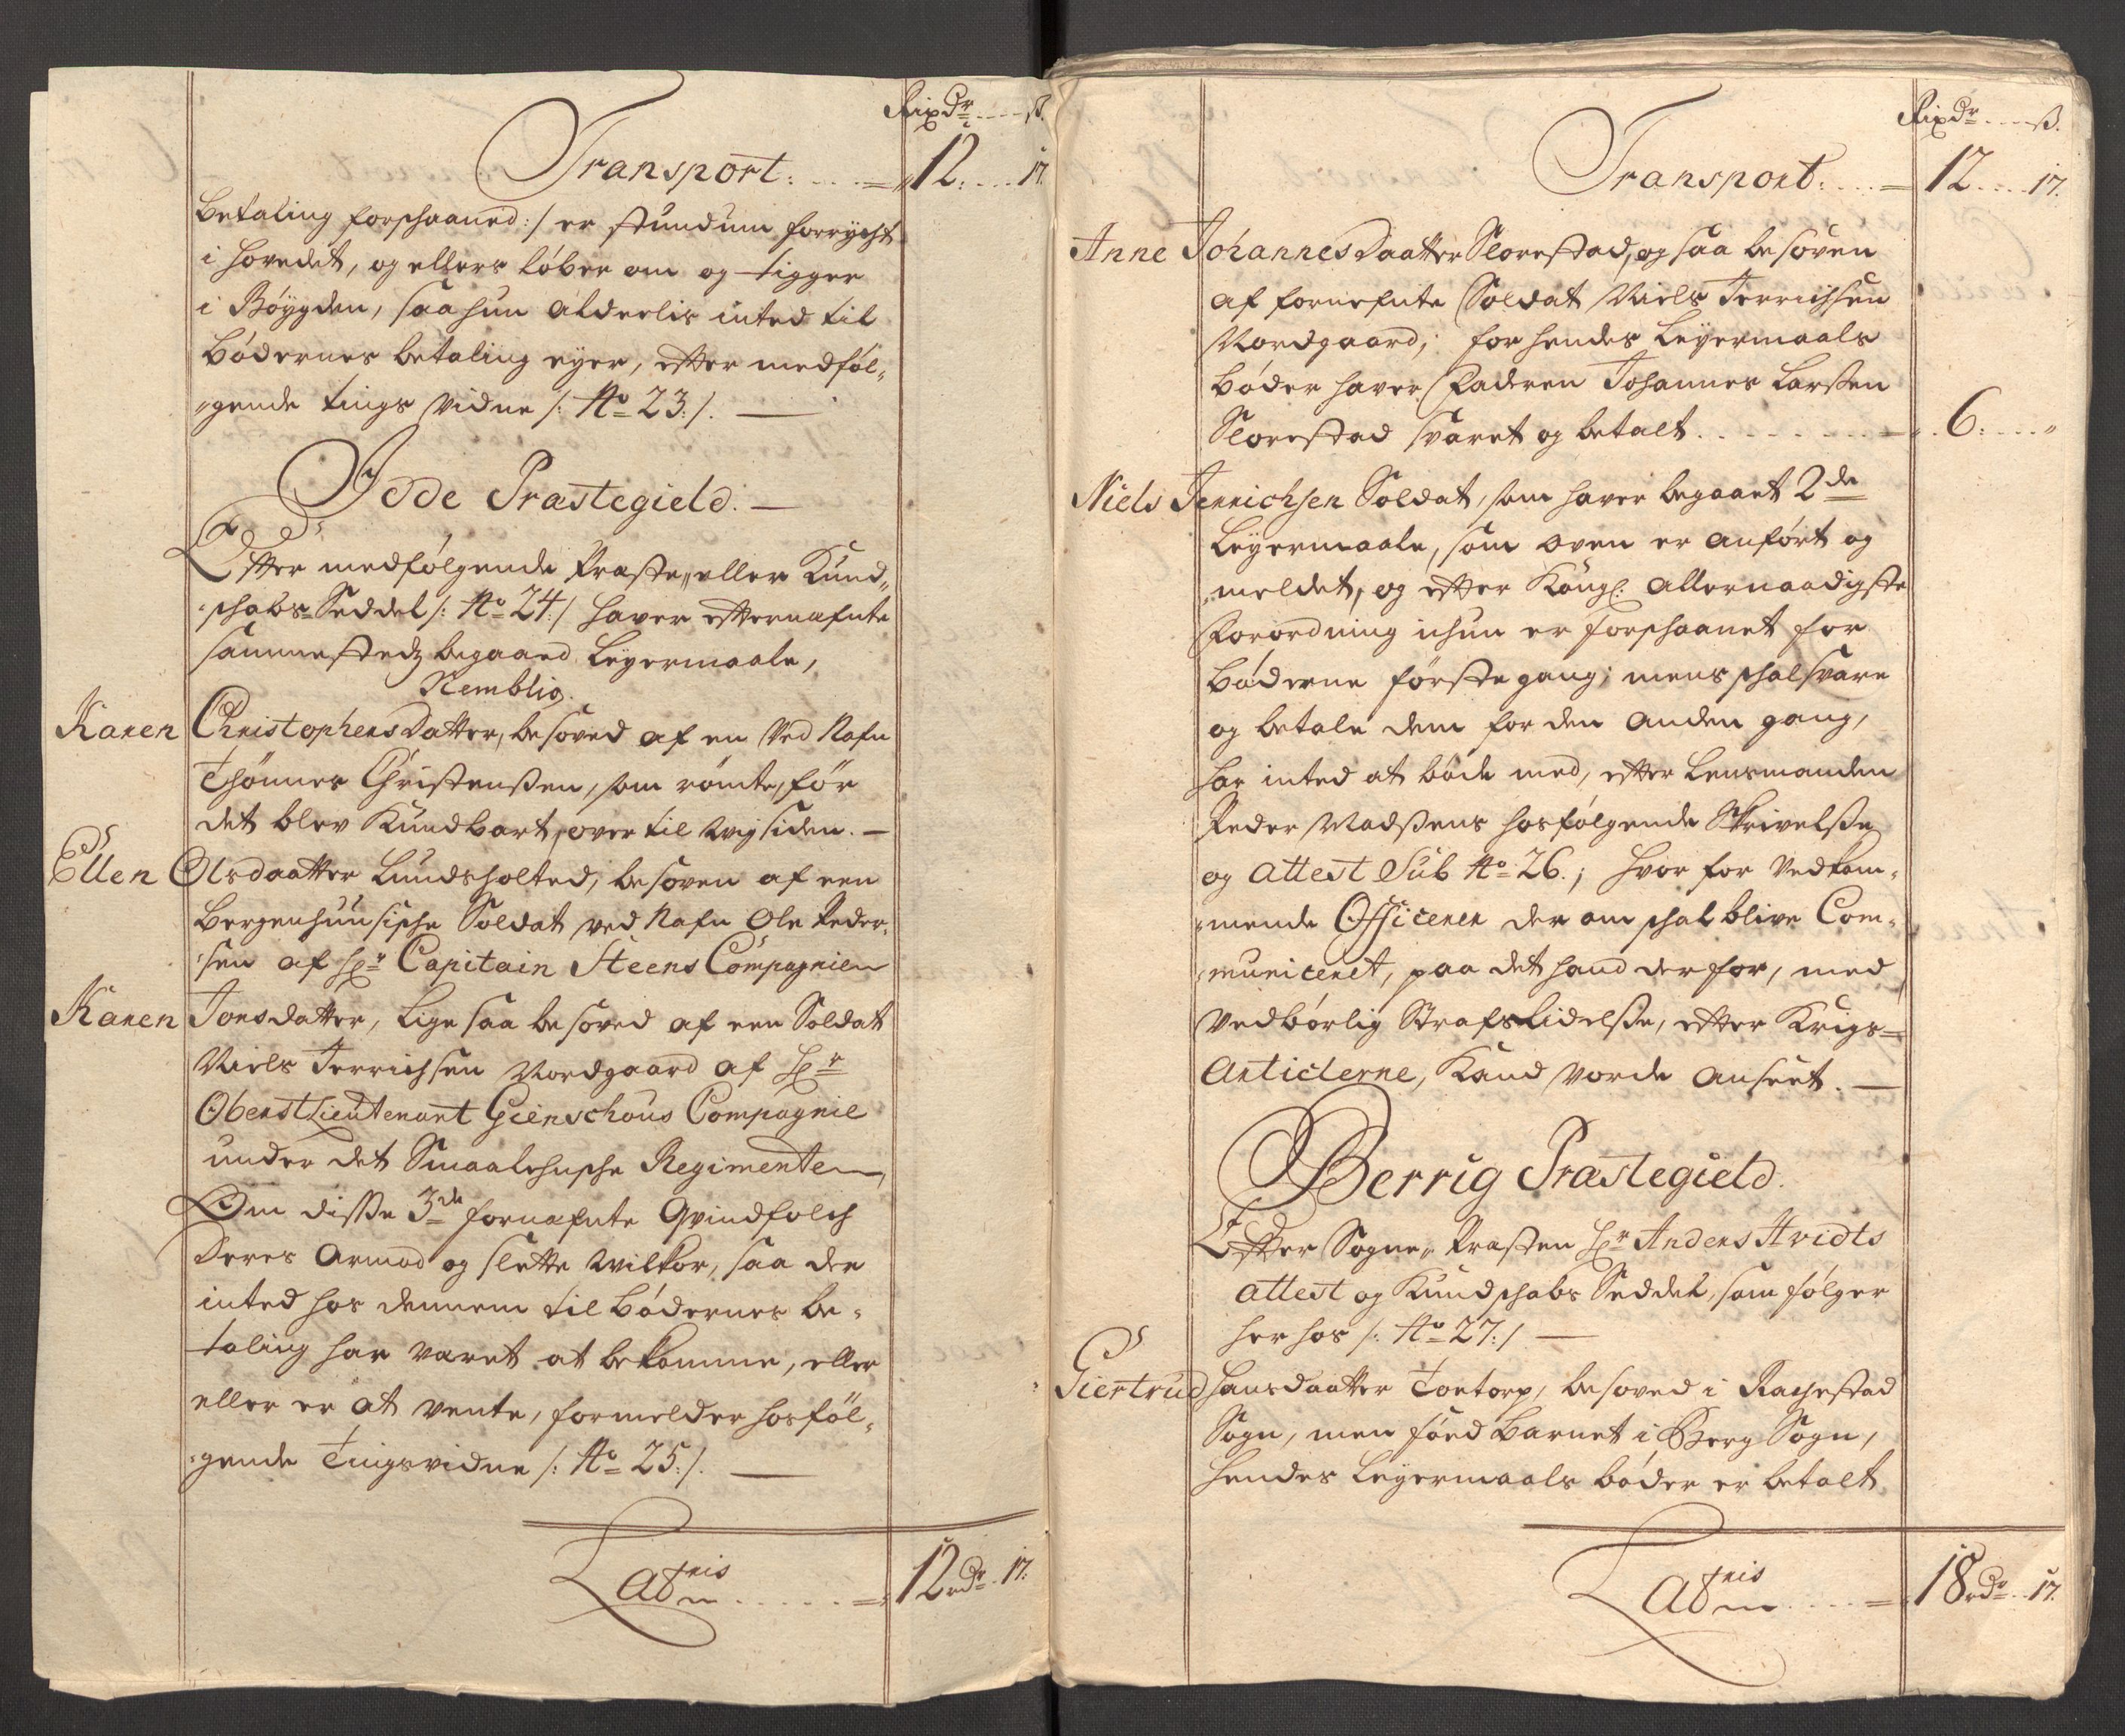 Rixdr ---- ß.
Transport: .... = 12: ... 17.
betaling forschaaned :/ er stundum forrycht
i hovedet, og ellers løber om og tigger
i Bøygden, saa hun alderlis inted til
bødernes betaling eyer, efter medføl-
gende tings vidne /: No 23 :/. —
Idde Præstegield. —
Efter medfølgende Præste eller Kund-
schabs Seddel /: No 24 :/ haver efternefnte
sammestedz begaaed Leyermaale,
Nemblig.
Karen Christophersdatter, besoved af en ved Nafn
Thønnes Christenßen, som rømte, før
det blev Kundbart, over til Wigsiden. —
Ellen Olsdaatter Lundsholted, besoven af een
Bergenhuusische Soldat ved Nafn Ole Peder-
sen af Hr Capitain Steens Compagnie
Karen Jonsdatter, lige saa besoved af een Soldat
Niels Jerrichsen Nordgaard af Hr
Oberstlieutenant Gierschous Compagnie
under det Smaalehnsche Regimente,
Om disse 3de fornefnte Qvindfolch
Deres Armod og slette Wilkor, saa der
inted hos dennem til bødernes be-
taling har været at bekomme, eller
eller er at vente, formelder hosføl-
gende Tingsvidne /: No 25 :/. —
Latris ..... = 12 rdr. 17.
Rixdr ---- ß.
Transport: ... = 12 ... 17.
Anne Johannesdaatter Slorestad, og saa besoven
af fornefnte Soldat Niels Jerrichsen
Nordgaard; for hendes Leyermaals
bøder haver Faderen Johannes Larßen
Slorestad svaret og betalt. ........ 6: ... "
Niels Jerrichsen Soldat, som haver begaaet 2de
Leyermaale, som oven er anført og
meldet, og efter Kongl: allernaadigste
Forordning ichun er forschaanet for
bøderne første gang; mens schal svare
og betale dem for den anden gang,
har inted at bøde med, efter Lensmanden
Peder Madßens hosfølgende Skrivelße
og attest Sub No 26.; hvor for vedkom-
mende Officerer der om schal blive Com-
municeret, paa det hand derfor, med
vedbørlig Strafs Lidelße, efter Krigs-
Articlerne, Kand vorde anseet. —
Berrig Præstegield.
Efter Sogne Præsten Hr Anders Hvidts
attest og Kundschabs Seddel, som følger
her hos /: No 27 :/ —
Giertrud Hansdaatter Torp, besoved i Rachestad
Sogn, men föed Barnet i Berg Sogn,
hendes Leyermaals bøder er betalt
Latris .... = 18 rdr. 17.